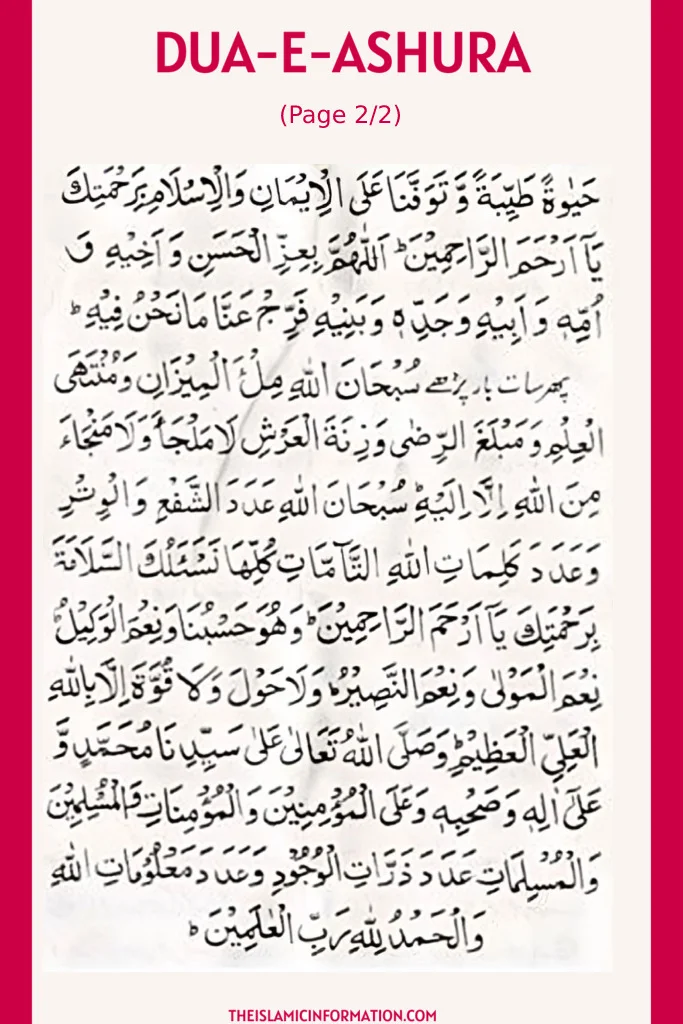 DUA-E-ASHURA
(Page 2/2)
حَيٰوةً طَيِّبَةً وَّتَوَفَّنَا عَلَى الْاِيْمَانِ وَالْاِسْلَامِ بِرَحْمَتِكَ
يَآ اَرْحَمَ الرَّاحِمِيْنَ ؕ اَللّٰهُمَّ بِعِزِّ الْحَسَنِ وَاَخِيْهِ وَ
اُمِّهٖ وَاَبِيْهِ وَجَدِّهٖ وَبَنِيْهِ فَرِّجْ عَنَّا مَا نَحْنُ فِيْهِ ؕ
پھر سات بار پڑھے سُبْحَانَ اللّٰهِ مِلْءَ الْمِيْزَانِ وَمُنْتَهَى
الْعِلْمِ وَمَبْلَغَ الرِّضٰى وَزِنَةَ الْعَرْشِ لَا مَلْجَاَ وَلَا مَنْجَاءَ
مِنَ اللّٰهِ اِلَّا اِلَيْهِ ؕ سُبْحَانَ اللّٰهِ عَدَدَ الشَّفْعِ وَالْوِتْرِ
وَعَدَدَ كَلِمَاتِ اللّٰهِ التَّآمَّاتِ كُلِّهَا نَسْئَلُكَ السَّلَامَةَ
بِرَحْمَتِكَ يَآ اَرْحَمَ الرَّاحِمِيْنَ ؕ وَهُوَ حَسْبُنَا وَنِعْمَ الْوَكِيْلُ
نِعْمَ الْمَوْلٰى وَنِعْمَ النَّصِيْرُ ؕ وَلَا حَوْلَ وَلَا قُوَّةَ اِلَّا بِاللّٰهِ
الْعَلِيِّ الْعَظِيْمِ ؕ وَصَلَّى اللّٰهُ تَعَالٰى عَلٰى سَيِّدِنَا مُحَمَّدٍ وَّ
عَلٰٓى اٰلِهٖ وَصَحْبِهٖ وَعَلَى الْمُؤْمِنِيْنَ وَالْمُؤْمِنَاتِ وَالْمُسْلِمِيْنَ
وَالْمُسْلِمَاتِ عَدَدَ ذَرَّاتِ الْوُجُوْدِ وَعَدَدَ مَعْلُوْمَاتِ اللّٰهِ
وَالْحَمْدُ لِلّٰهِ رَبِّ الْعٰلَمِيْنَ ؕ
THEISLAMICINFORMATION.COM